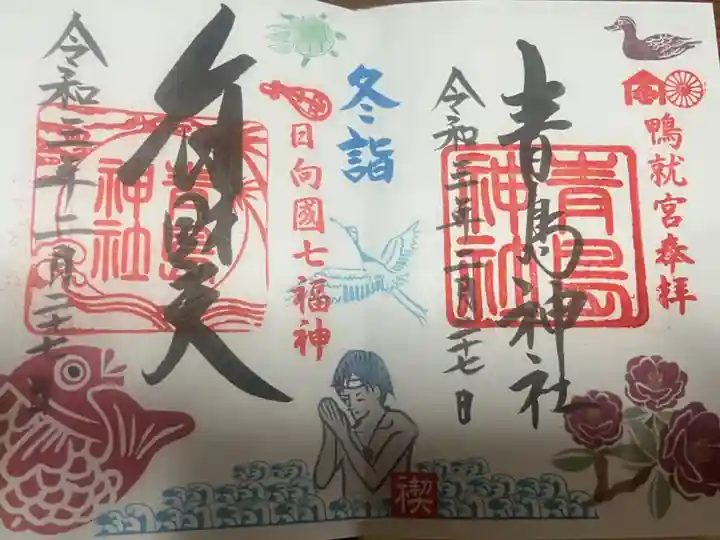 鴨就宮奉拝
青島神社
青島
神社
令和三年二月二十七日
冬詣
日向國七福神
弁財天
青島
神社
令和三年二月二十七日
禊